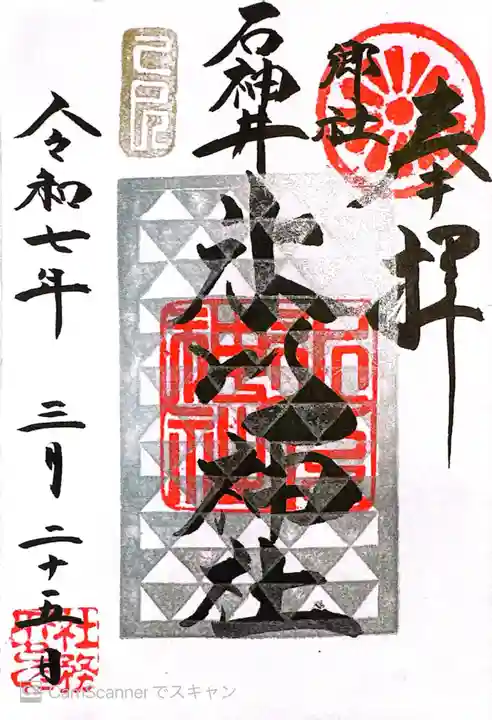 奉拝
郷社
石神井
氷川神社
令和七年 三月 二十五日
社務
CamScannerでスキャン